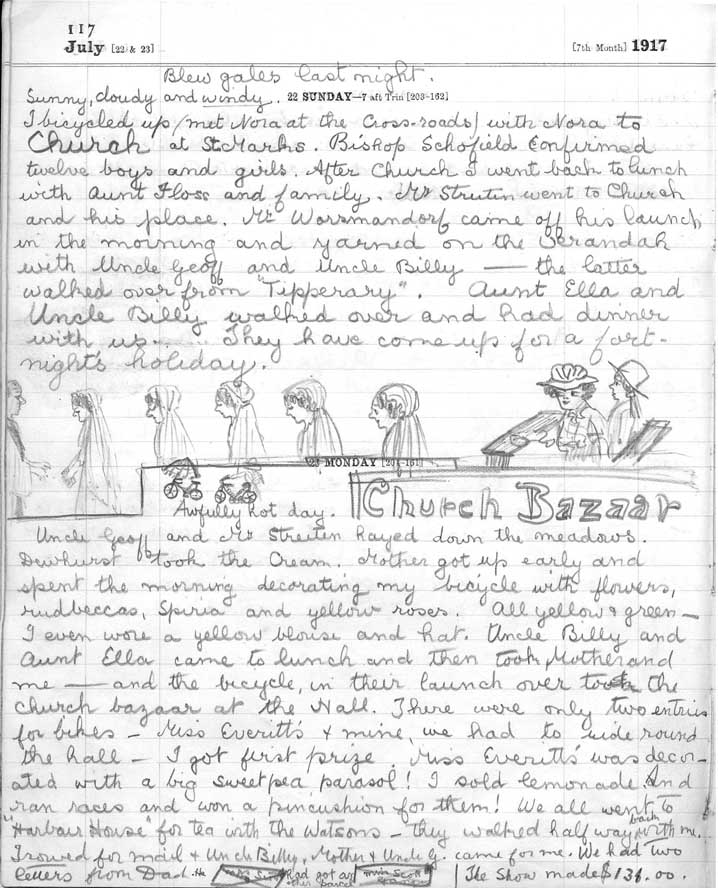 117
July [22 & 23] [7th Month] 1917
Blew gales last night.
Sunny, cloudy and windy. 22 SUNDAY—7 aft Trin [203-162]
I bicycled up /met Nora at the Cross-roads/ with Nora to
Church at St Marks. Bishop Schofield Confirmed
twelve boys and girls. After Church I went back to lunch
with Aunt Floss and family. Mr Streatin went to Church
and his place. Mr Worsmandorf came off his launch
in the morning and yarned on the Verandah
with Uncle Geoff and Uncle Billy — the latter
walked over from "Tipperary". Aunt Ella and
Uncle Billy walked over and had dinner
with us...... They have come up for a fort-
night's holiday.
23 MONDAY [204-161]
Church Bazaar
Awfully hot day.
Uncle Geoff and Mr Streatin hayed down the meadows.
Dewhurst took the Cream. Mother got up early and
spent the morning decorating my bicycle with flowers,
rudbeccas, Spiria and yellow roses. All yellow & green —
I even wore a yellow blouse and hat. Uncle Billy and
Aunt Ella came to lunch and then took Mother and
me — and the bicycle, in their launch over to the
church bazaar at the Hall. There were only two entries
for bikes — Miss Everitt's & mine, we had to ride round
the hall — I got first prize. Miss Everitt's was decor-
ated with a big sweetpea parasol! I sold lemonade. And
ran races and won a pincushion for them! We all went to
"Harbour House" for tea with the Watsons — they walked half way back with me.
I rowed for mail & Uncle Billy, Mother & Uncle G. came for me. We had two
letters from Dad. He had got our other parcel The Show made $134.00.